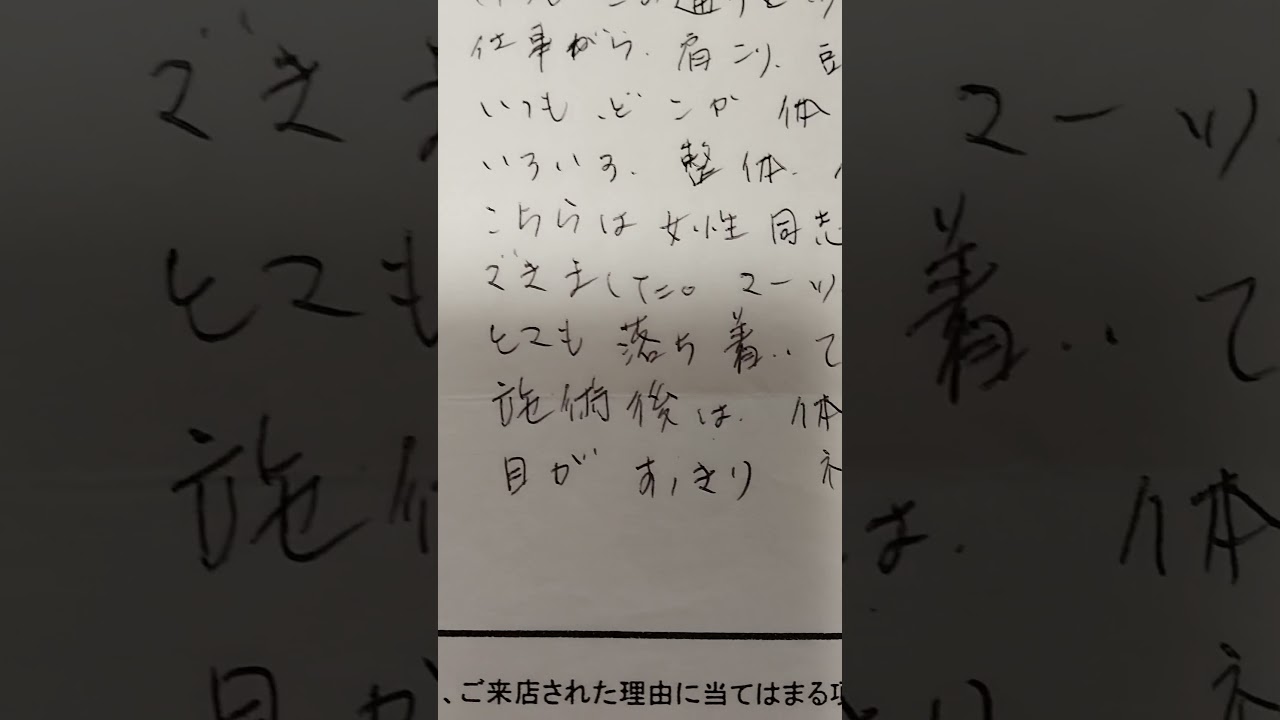 仕事がら、肩こり、
いつも、どこか 体
いろいろ、整体、
こちらは 女性 同志
できました。マーッ
とても 落ち着いて
施術後は、体
目が すっきり
、ご来店された理由に当てはまる項